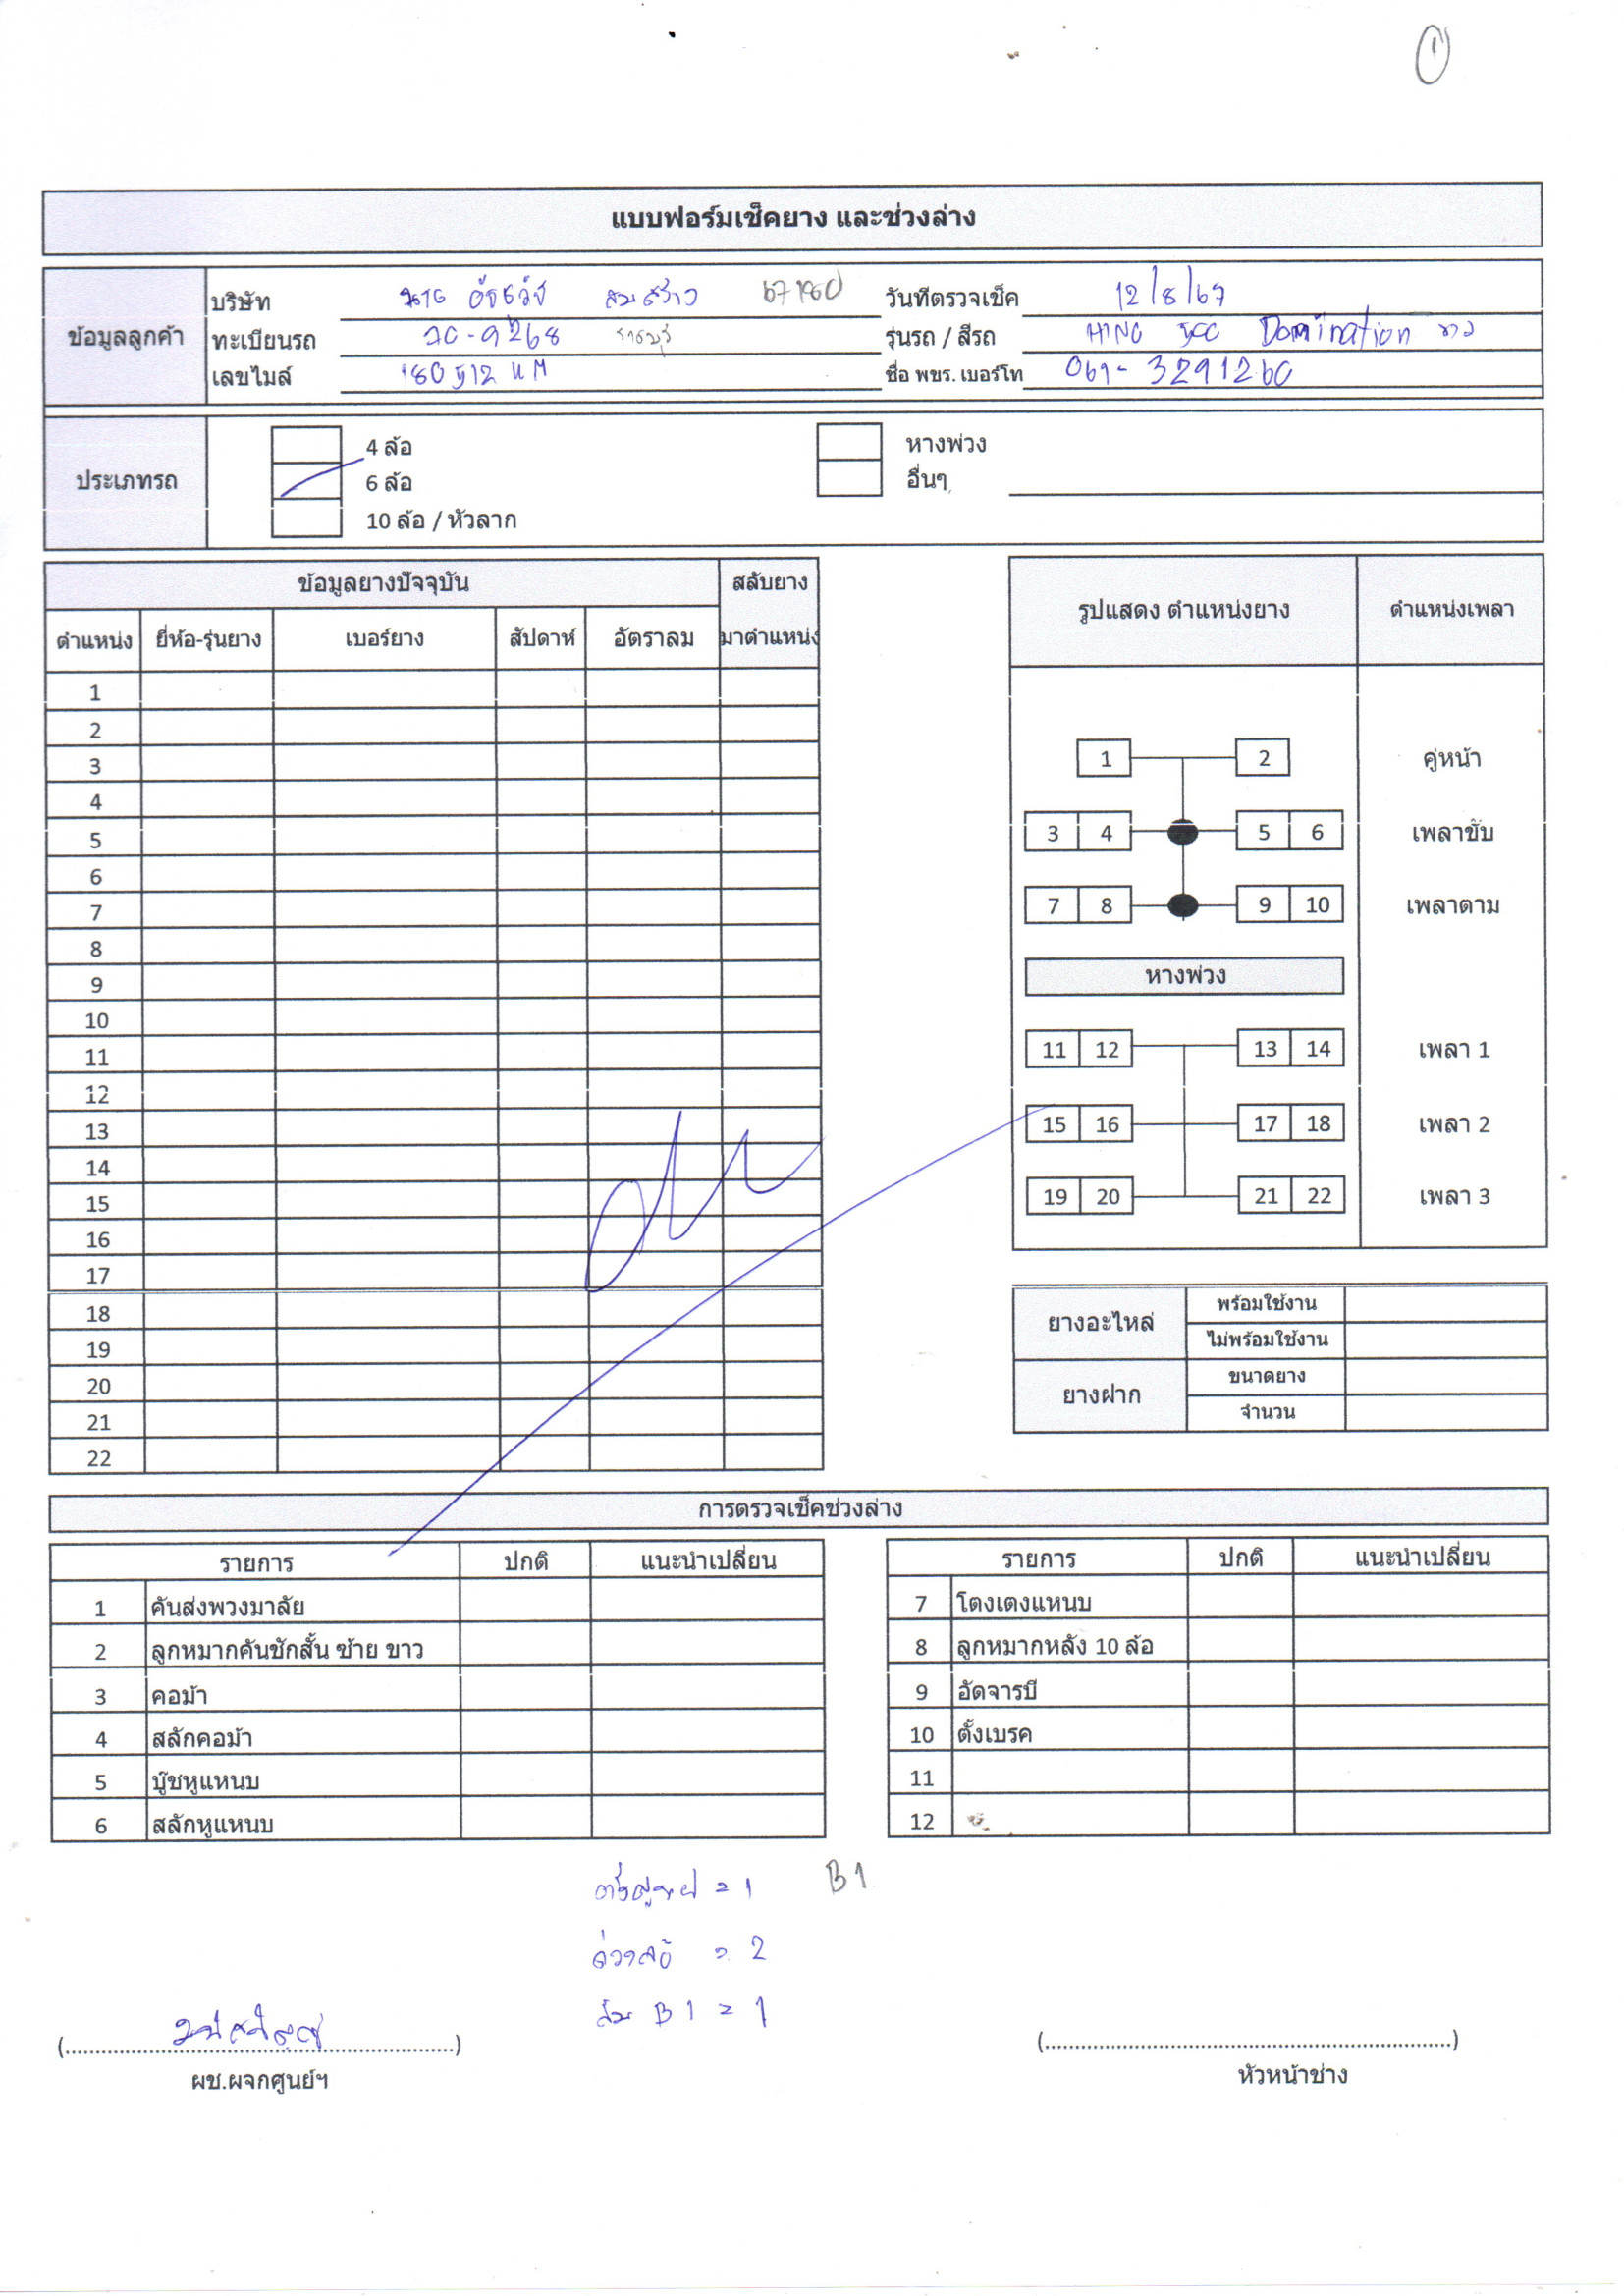 1
แบบฟอร์มเช็คยาง และช่วงล่าง
ข้อมูลลูกค้า
บริษัท 67180 วันที่ตรวจเช็ค 12/8/67
ทะเบียนรถ 70-9268 ราชบุรี รุ่นรถ / สีรถ HINO 500 Domination ขาว
เลขไมล์ 180512 KM ชื่อ พขร. เบอร์โท 061-3291260
ประเภทรถ
4 ล้อ หางพ่วง
6 ล้อ อื่นๆ
10 ล้อ / หัวลาก
ข้อมูลยางปัจจุบัน สลับยาง
ตำแหน่ง ยี่ห้อ-รุ่นยาง เบอร์ยาง สัปดาห์ อัตราลม มาตำแหน่ง
1
2
3
4
5
6
7
8
9
10
11
12
13
14
15
16
17
18
19
20
21
22
รูปแสดง ตำแหน่งยาง ตำแหน่งเพลา
1 2 คู่หน้า
3 4 5 6 เพลาขับ
7 8 9 10 เพลาตาม
หางพ่วง
11 12 13 14 เพลา 1
15 16 17 18 เพลา 2
19 20 21 22 เพลา 3
ยางอะไหล่ พร้อมใช้งาน
ไม่พร้อมใช้งาน
ยางฝาก ขนาดยาง
จำนวน
การตรวจเช็คช่วงล่าง
รายการ ปกติ แนะนำเปลี่ยน
1 คันส่งพวงมาลัย
2 ลูกหมากคันชักสั้น ซ้าย ขาว
3 คอม้า
4 สลักคอม้า
5 บู๊ชหูแหนบ
6 สลักหูแหนบ
รายการ ปกติ แนะนำเปลี่ยน
7 โตงเตงแหนบ
8 ลูกหมากหลัง 10 ล้อ
9 อัดจารบี
10 ตั้งเบรค
11
12
ตั้งศูนย์ = 1 B1
ถ่วงล้อ = 2
B1 = 1
(..........)
ผช.ผจกศูนย์ฯ
(..........)
หัวหน้าช่าง